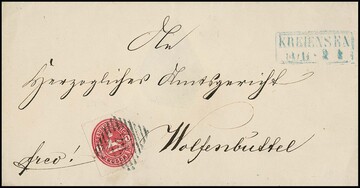 An
KREIENSEN
Herzogliches Amtsgericht
Wolfenbüttel
freo!